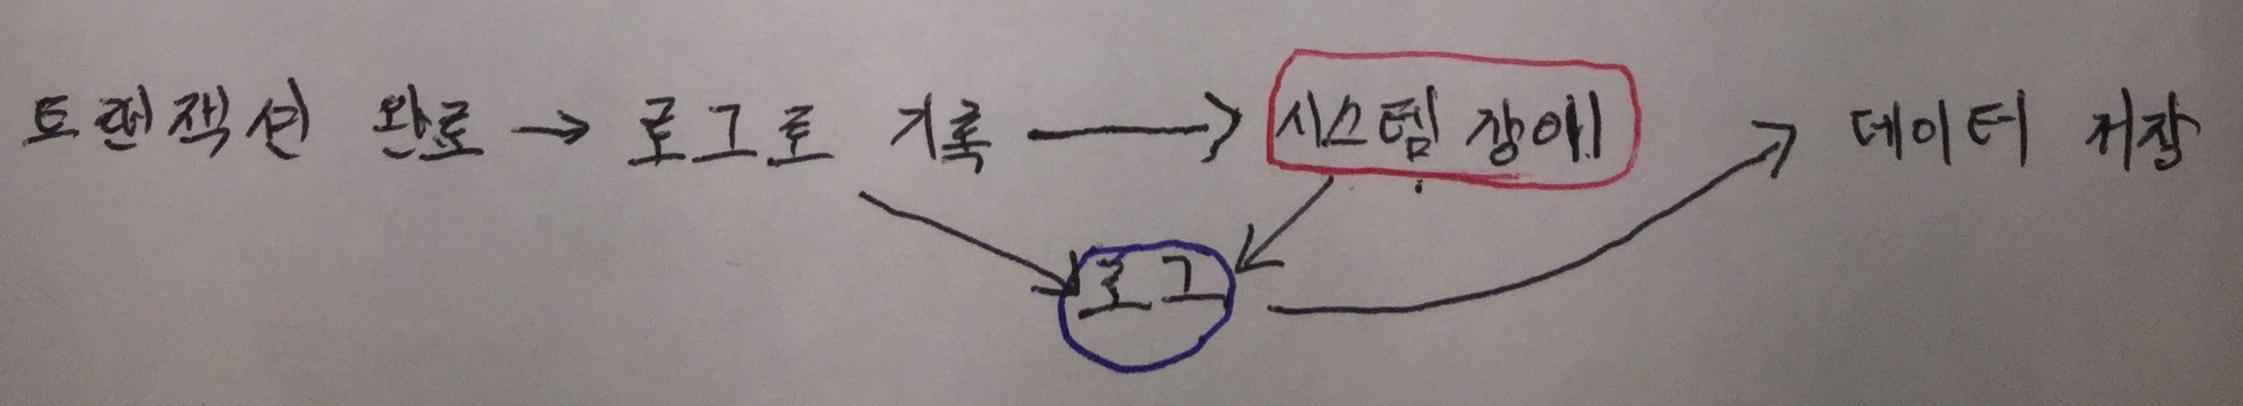 토랜잭션 완료 → 로그로 기록 → 시스템 장애 데이터 저장
로그